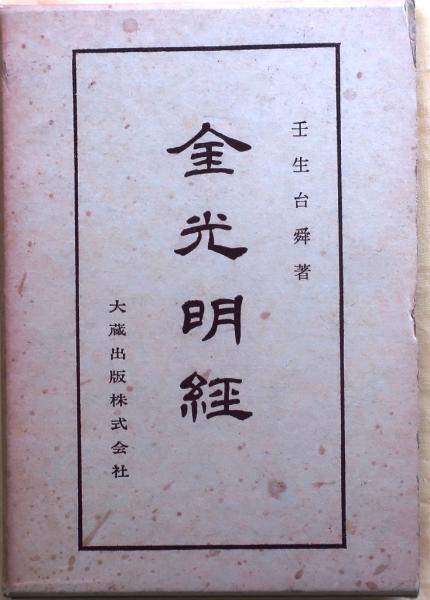 壬生台舜著
金光明経
大蔵出版株式会社